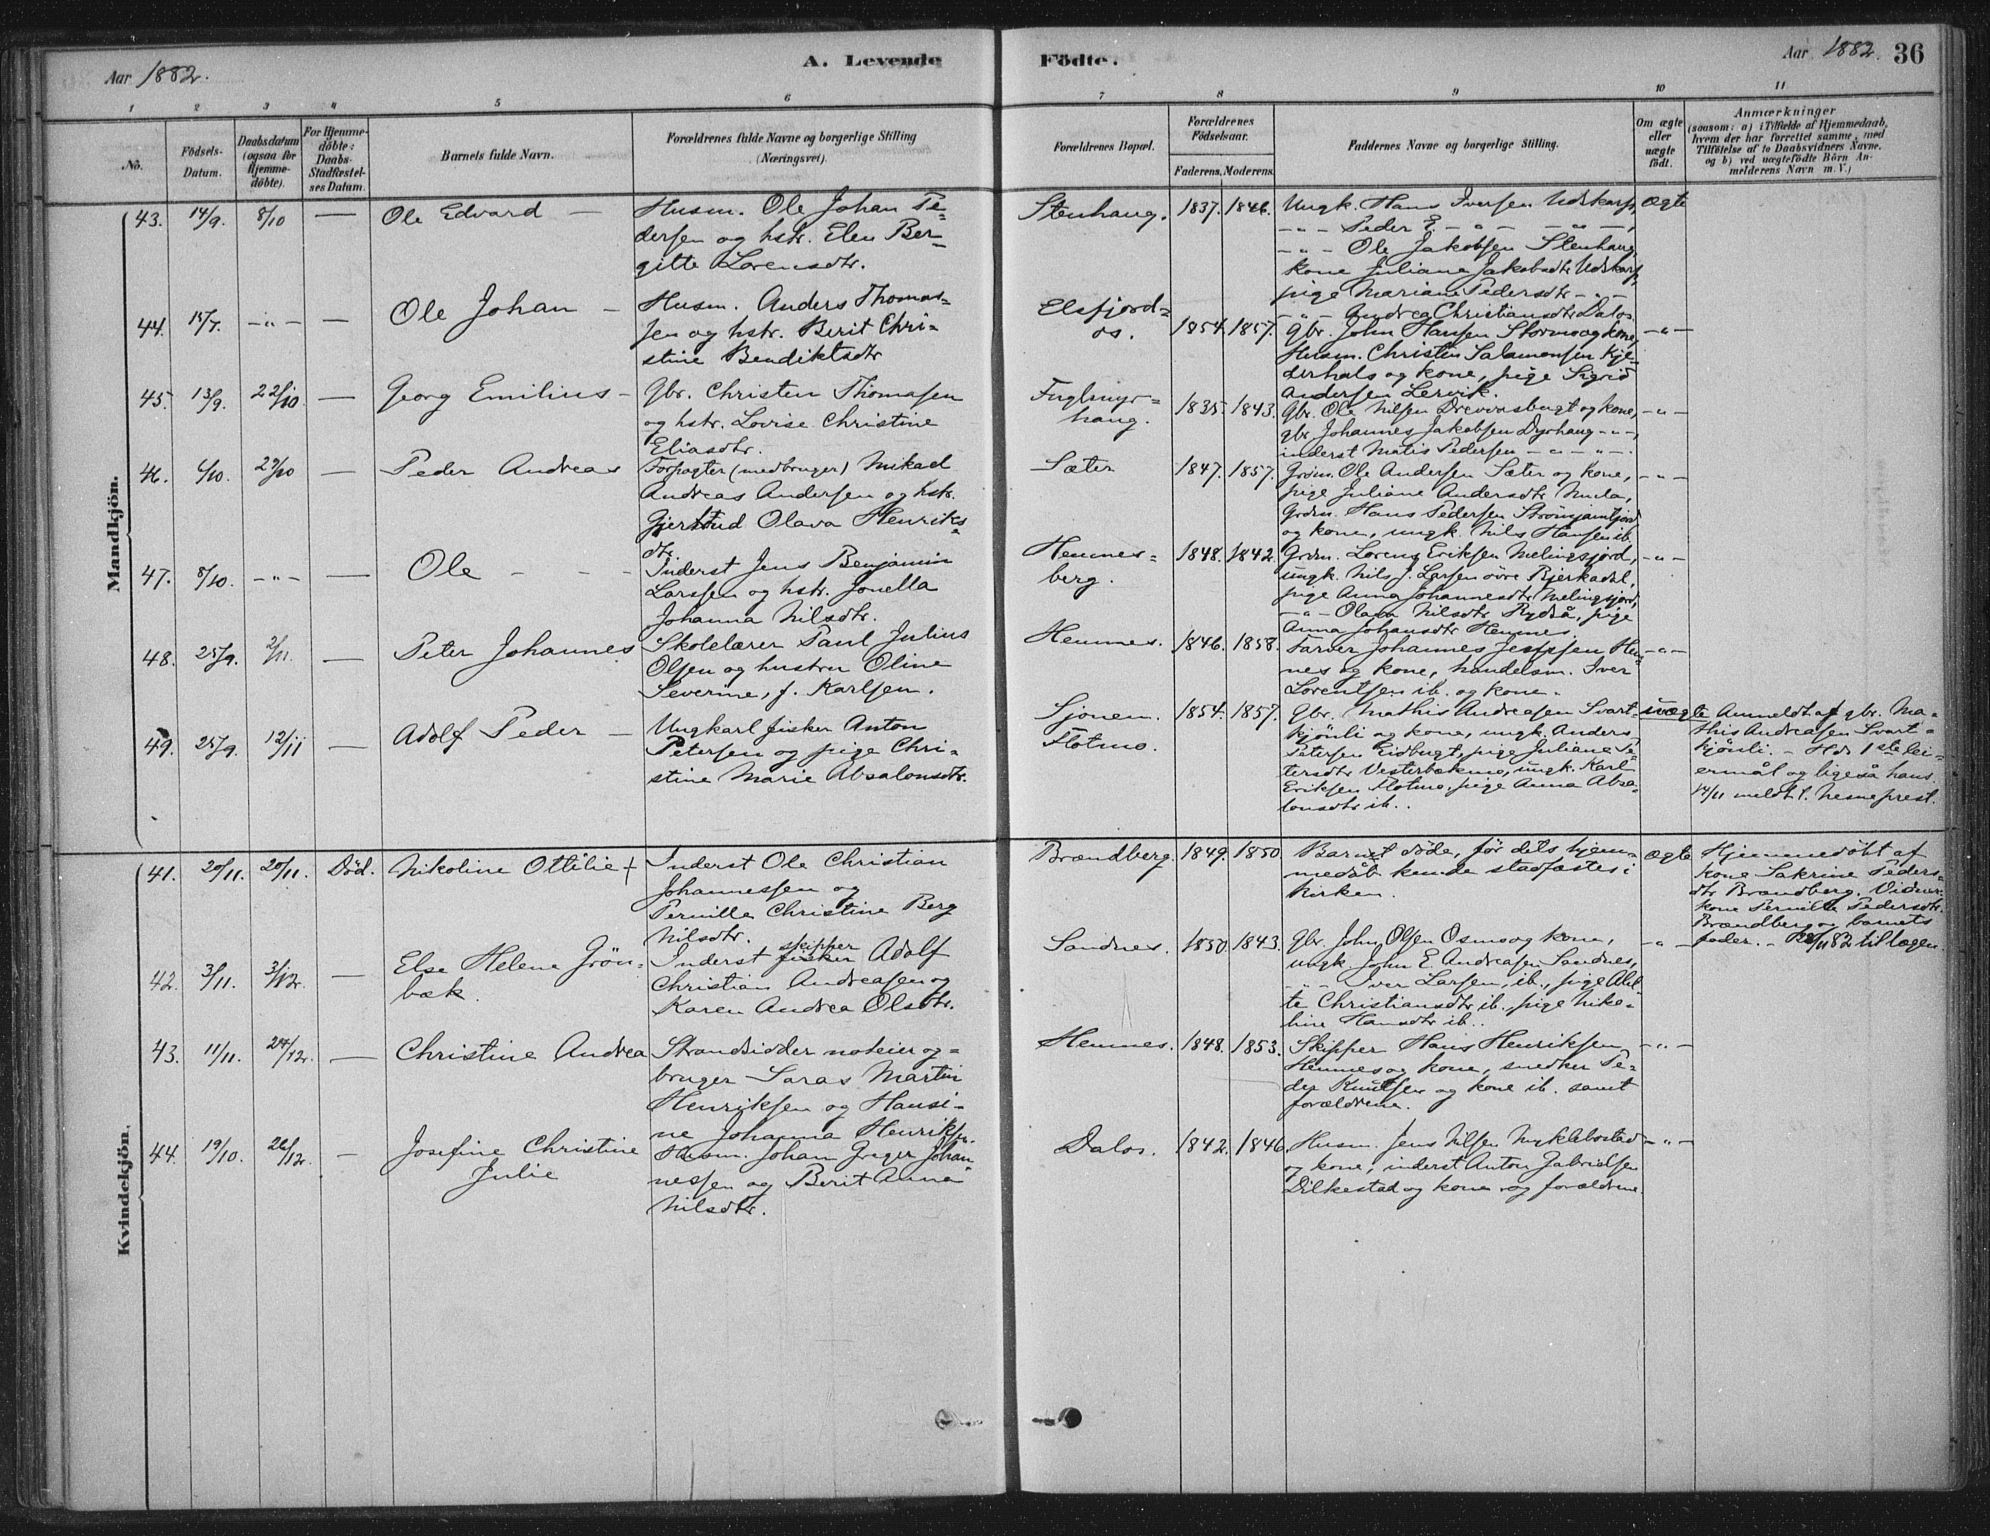 Aar 1882.
A. Levende
Födte.
Aar 1882.
36
1 2 3 4 5 6
7 8 9 10 11
No.
Födsels-
Datum.
Daabsdatum
(ogsaa for
Hjemme-
döbte).
For Hjemme-
döbte:
Daabs-
Stadfæstel-
ses Datum.
Barnets fulde Navn.
Forældrenes fulde Navne og borgerlige Stilling
(Næringsvei).
Forældrenes Bopæl.
Forældrenes
Födselsaar.
Faderens. Moderens.
Faddernes Navne og borgerlige Stilling.
Om ægte
eller
uægte
födt.
Anmærkninger
(saasom: a) i Tilfælde af Hjemmedaab,
hvem der har forrettet samme, med
Tilföielse af to Daabsvidners Navne,
og b) ved uægtefödte Börn An-
melderens Navn m. V.)
Mandkjön.
43. 14/9. 8/10 — Ole Edvard —
Husm. Ole Johan Pe-
dersen og hstr. Elen Ber-
gitte Lorensdtr.
Stenhaug. 1837. 1846.
Ungk. Hans Iversen Udskarp, ægte
-„- Peder E. -„- -„-,
-„- Ole Jakobsen Stenhaug
kone Juliane Jakobsdtr Udskarp,
pige Mariane Pedersdtr -„-
-„- Andrea Christiansdtr Dalos.
44. -„- — Ole Johan —
Husm. Anders Thomas-
sen og hstr. Berit Chri-
stine Bendiktsdtr
Elsfjord-
os. 1854. 1857.
Gbr. John Hansen Stormo og kone, -„-
Husm. Christen Salamonsen Kje-
derhals og kone, pige Sigrid
Andersen Lervik.
45. 13/9. 22/10. — Georg Emilius —
Gbr. Christen Thomasen
og hstr. Lovise Christine
Eliasdtr.
Fuglmyr-
haug. 1835. 1843.
Gbr. Ole Nilsen Drevvasbugt og kone, -„-
gbr Johannes Jakobsen Dyrhaug -„-,
inderst Matis Pedersen -„- -„-.
46. 29/10 — Peder Andreas
Forpagter (medbruger) Mikael
Andreas Andersen og hstr.
Gjertrud Olava Henriks-
dtr.
Sæter 1847. 1857.
Grdm. Ole Andersen Sæter og kone, -„-
pige Juliane Andersdtr
Grdm. Hans Pedersen
og kone, ungk. Nils Hansen ib.
47. 8/10. -„- — Ole - - -
Inderst Jens Benjamin
Larssen og hstr. Jonella
Johanna Nilsdtr.
Hemnes-
berg. 1848. 1842
Grdm. Lorens Eriksen Melingsjord, -„-
ungk. Nils J. Larsen övre Bjerkadal,
pige Anna Johannesdtr Melingsjord,
-„- Olava Nilsdtr Rydså, pige
Anna Johansdtr Hemnes.
48. 25/9. 2/11. — Peter Johannes
Skolelærer Paul Julius
Olsen og hustru Oline
Severine, f. Karlsen.
Hemnes. 1846. 1858.
Farver Johannes Jessen Hem- -„-
nes og kone, handelsm. Iver
Lorentsen ib. og kone.
49. 25/9. 12/11 — Adolf Peder —
Ungkarl fisker Anton
Petersen og pige Chri-
stine Marie Absalonsdtr.
Sjonem.
Flotmo. 1854. 1857.
Gbr. Mathis Andreasen Svart- uægte
kjönli og kone, ungk. Anders
Petersen Eidbugt, pige Juliane Pe-
tersdtr Vesterbækmo, ungk. Karl
Eriksen Flotmo, pige Anna Absa-
lonsdtr ib..
Anmeldt af gbr. Ma-
this Andreasen Svart-
kjönli. - Hds 1ste lei-
ermål og ligeså hans.
14/11 meldt t. Nesne prest.
Kvindekjön.
41. 20/11. 20/11. Död. Nikoline Ottilie +
Inderst Ole Christian
Johannessen og
Pernille Christine Berg
Nilsdtr.
Brændberg. 1849. 1850
Barnet döde, før dets hjem- ægte
medåb kunde stadfæstes i
kirken.
Hjemmedöbt af
kone Sakrine Peders-
dtr Brandberg. Vidner:
kone Pernille Pedersdtr.
Brændberg og barnets
fader. - 82 tiltagen
42. 3/11. 3/12. — Else Helene Grön-
bæk.
Inderst, skipper fisker Adolf
Christian Andreasen og
Karen Andrea Olsdtr.
Sandnes. 1850. 1843.
Gbr. John Olsen Osmo og kone, -„-
ungk John E. Andreasen Sandnes,
-„- Iver Larsen, ib., pige
Christiansdtr ib., pige Niko-
line Hansdtr ib..
43. 11/11. 24/12. — Christine Andrea
Strandsidder noteier og -
bruger Laras Martin
Henriksen og Hansi-
ne Johanna Henriksn.
Hemnes. 1848. 1853.
Skipper Hans Henriksen -„-
Hemnes og kone, snedker Pe-
der Knutsen og kone ib. samt
forældrene.
44. 19/10. 26/12. — Josefine Christine
Julie
Husm. Johan Greger Johan-
nessen og Berit Anna
Nilsdtr.
Dalos. 1842. 1846.
Husm. Jens Nilsen Myklebostad -„-
og kone, inderst Anton Gabrielsen
Dilkestad og kone og forældrene.